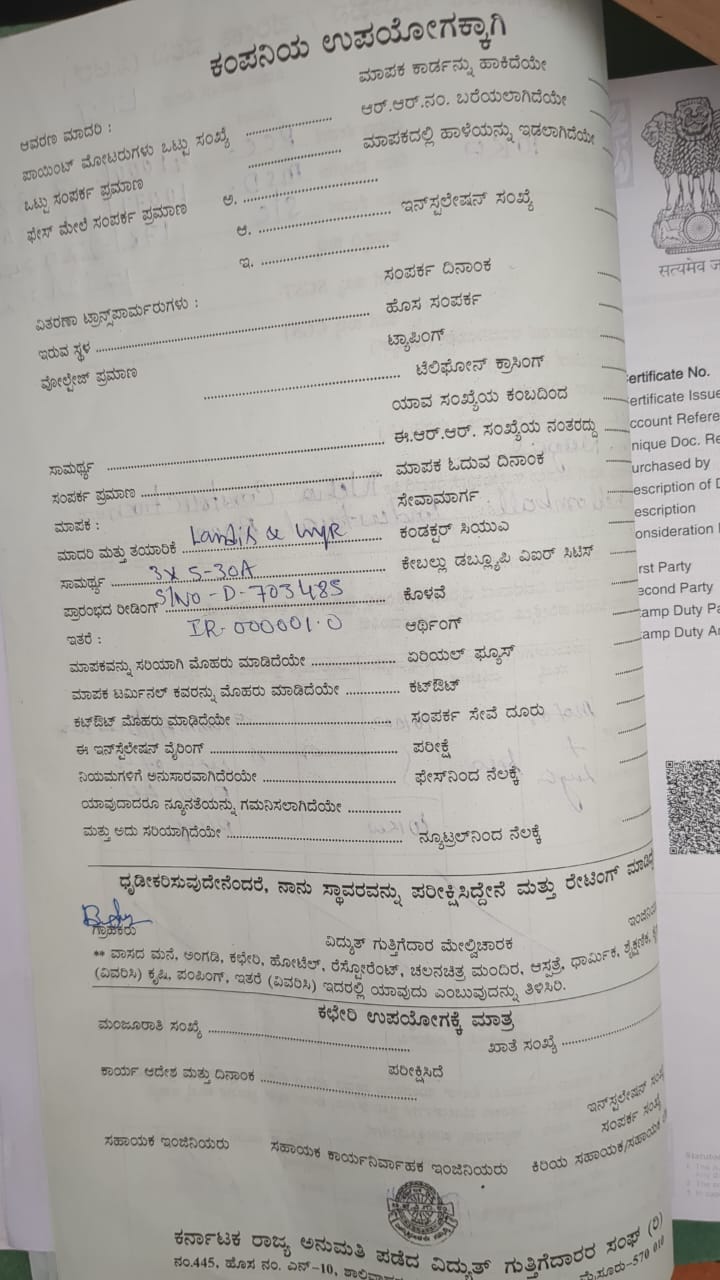 ಕಂಪನಿಯ ಉಪಯೋಗಕ್ಕಾಗಿ
ಮಾಪಕ ಕಾರ್ಡನ್ನು ಹಾಕಿದೆಯೇ
ಆವರಣ ಮಾದರಿ :
ಆರ್.ಆರ್.ನಂ. ಬರೆಯಲಾಗಿದೆಯೇ
ಪಾಯಿಂಟ್ ಮೋಟರುಗಳು ಒಟ್ಟು ಸಂಖ್ಯೆ
ಮಾಪಕದಲ್ಲಿ ಹಾಳೆಯನ್ನು ಇಡಲಾಗಿದೆಯೇ
ಒಟ್ಟು ಸಂಪರ್ಕ ಪ್ರಮಾಣ
ಫೇಸ್ ಮೇಲೆ ಸಂಪರ್ಕ ಪ್ರಮಾಣ ಅ.
ಆ. ಇನ್‌ಸ್ಪಲೇಷನ್ ಸಂಖ್ಯೆ
ಇ.
ಸಂಪರ್ಕ ದಿನಾಂಕ
ವಿತರಣಾ ಟ್ರಾನ್ಸ್‌ಪಾರ್ಮರುಗಳು :
ಹೊಸ ಸಂಪರ್ಕ
ಇರುವ ಸ್ಥಳ
ಟ್ಯಾಪಿಂಗ್
ವೋಲ್ಟೇಜ್ ಪ್ರಮಾಣ
ಟೆಲಿಫೋನ್ ಕ್ರಾಸಿಂಗ್
ಯಾವ ಸಂಖ್ಯೆಯ ಕಂಬದಿಂದ
ಸಾಮರ್ಥ್ಯ
ಈ.ಆರ್.ಆರ್. ಸಂಖ್ಯೆಯ ನಂತರದ್ದು
ಸಂಪರ್ಕ ಪ್ರಮಾಣ
ಮಾಪಕ ಓದುವ ದಿನಾಂಕ
ಮಾಪಕ :
ಸೇವಾಮಾರ್ಗ
ಮಾದರಿ ಮತ್ತು ತಯಾರಿಕೆ Landis & Gyr ಕಂಡಕ್ಟರ್ ಸಿಯುವಿ
ಸಾಮರ್ಥ್ಯ 3x5-30A ಕೇಬಲ್ಲು ಡಬ್ಲ್ಯೂಪಿ ವಿಐರ್ ಸಿಟಿಸ್
ಪ್ರಾರಂಭದ ರೀಡಿಂಗ್ S/NO-D-703485 ಕೊಳವೆ
ಇತರೆ : IR-000001.0 ಆರ್ಥಿಂಗ್
ಮಾಪಕವನ್ನು ಸರಿಯಾಗಿ ಮೊಹರು ಮಾಡಿದೆಯೇ ಏರಿಯಲ್ ಫ್ಯೂಸ್
ಮಾಪಕ ಟರ್ಮಿನಲ್ ಕವರನ್ನು ಮೊಹರು ಮಾಡಿದೆಯೇ ಕಟ್‌ಔಟ್
ಕಟ್‌ಔಟ್ ಮೊಹರು ಮಾಡಿದೆಯೇ ಸಂಪರ್ಕ ಸೇವೆ ದೂರು
ಈ ಇನ್‌ಸ್ಪೆಲೇಷನ್ ವೈರಿಂಗ್ ಪರೀಕ್ಷೆ
ನಿಯಮಗಳಿಗೆ ಅನುಸಾರವಾಗಿದೆರಯೇ ಫೇಸ್‌ನಿಂದ ನೆಲಕ್ಕೆ
ಯಾವುದಾದರೂ ನ್ಯೂನತೆಯನ್ನು ಗಮನಿಸಲಾಗಿದೆಯೇ
ಮತ್ತು ಅದು ಸರಿಯಾಗಿದೆಯೇ ನ್ಯೂಟ್ರಲ್‌ನಿಂದ ನೆಲಕ್ಕೆ
ಧೃಡೀಕರಿಸುವುದೇನೆಂದರೆ, ನಾನು ಸ್ಥಾವರವನ್ನು ಪರೀಕ್ಷಿಸಿದ್ದೇನೆ ಮತ್ತು ರೇಟಿಂಗ್
ಗ್ರಾಹಕರು ವಿದ್ಯುತ್ ಗುತ್ತಿಗೆದಾರ ಮೇಲ್ವಿಚಾರಕ
** ವಾಸದ ಮನೆ, ಅಂಗಡಿ, ಕಛೇರಿ, ಹೋಟೆಲ್, ರೆಸ್ಟೋರೆಂಟ್, ಚಲನಚಿತ್ರ ಮಂದಿರ, ಆಸ್ಪತ್ರೆ, ಧಾರ್ಮಿಕ, ಶೈಕ್ಷಣಿಕ,
(ವಿವರಿಸಿ) ಕೃಷಿ, ಪಂಪಿಂಗ್, ಇತರೆ (ವಿವರಿಸಿ) ಇದರಲ್ಲಿ ಯಾವುದು ಎಂಬುವುದನ್ನು ತಿಳಿಸಿರಿ.
ಕಛೇರಿ ಉಪಯೋಗಕ್ಕೆ ಮಾತ್ರ
ಮಂಜೂರಾತಿ ಸಂಖ್ಯೆ ಖಾತೆ ಸಂಖ್ಯೆ
ಕಾರ್ಯ ಆದೇಶ ಮತ್ತು ದಿನಾಂಕ ಪರೀಕ್ಷಿಸಿದೆ
ಇನ್‌ಸ್ಪಲೇಷನ್
ಸಂಪರ್ಕ ಸಂಖ್ಯೆ
ಸಹಾಯಕ ಇಂಜಿನಿಯರು ಸಹಾಯಕ ಕಾರ್ಯನಿರ್ವಾಹಕ ಇಂಜಿನಿಯರು ಕಿರಿಯ ಸಹಾಯಕ/ಸಹಾಯಕ
ಕರ್ನಾಟಕ ರಾಜ್ಯ ಅನುಮತಿ ಪಡೆದ ವಿದ್ಯುತ್ ಗುತ್ತಿಗೆದಾರರ ಸಂಘ (ರಿ)
ನಂ.445, ಹೊಸ ನಂ. ಎನ್-10, ಮೈಸೂರು-570 010
सत्यमेव
ertificate No.
ertificate Issue
ccount Refere
nique Doc. Re
urchased by
escription of D
escription
onsideration
rst Party
econd Party
tamp Duty Pa
tamp Duty A